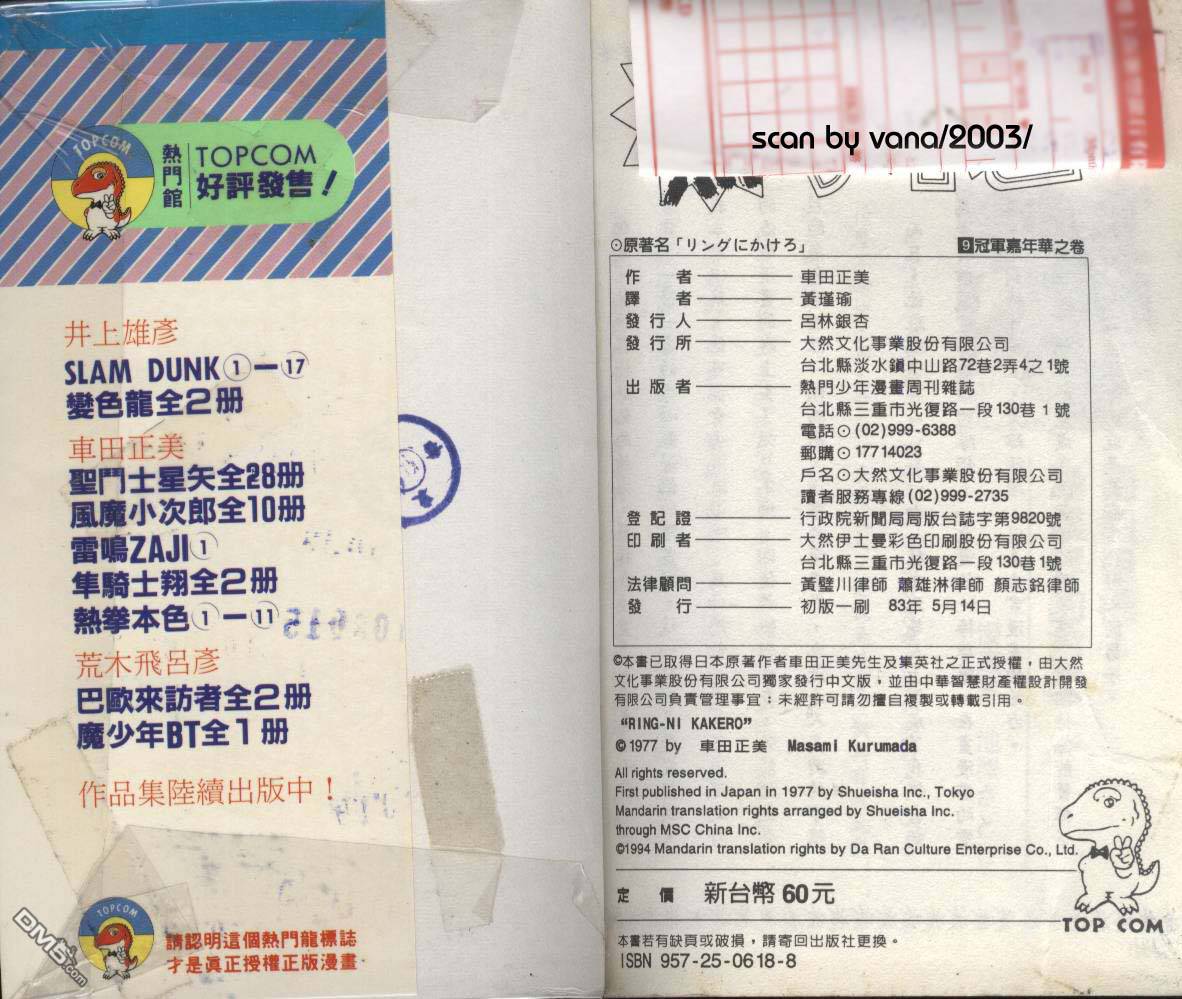 TOPCOM
熱門館
TOPCOM
好評發售！
井上雄彥
SLAM DUNK①—⑰
變色龍全2册
車田正美
聖鬥士星矢全28册
風魔小次郎全10册
雷鳴ZAJI①
隼騎士翔全2册
熱拳本色①—⑪
荒木飛呂彥
巴歐來訪者全2册
魔少年BT全1册
作品集陸續出版中！
TOPCOM
請認明這個熱門龍標誌
才是眞正授權正版漫畫
DM5.com
scan by vana/2003/
⊙原著名「リングにかけろ」
9冠軍嘉年華之卷
作者——車田正美
譯者——黃瑾瑜
發行人——呂林銀杏
發行所——大然文化事業股份有限公司
台北縣淡水鎭中山路72巷2弄4之1號
出版者——熱門少年漫畫周刊雜誌
台北縣三重市光復路一段130巷1號
電話⊙(02)999-6388
郵購⊙17714023
戶名⊙大然文化事業股份有限公司
讀者服務專線(02)999-2735
登記證——行政院新聞局局版台誌字第9820號
印刷者——大然伊士曼彩色印刷股份有限公司
台北縣三重市光復路一段130巷1號
法律顧問——黃璧川律師 蕭雄淋律師 顏志銘律師
發行——初版一刷 83年5月14日
©本書已取得日本原著作者車田正美先生及集英社之正式授權，由大然
文化事業股份有限公司獨家發行中文版，並由中華智慧財產權設計開發
有限公司負責管理事宜；未經許可請勿擅自複製或轉載引用。
“RING-NI KAKERO”
©1977 by 車田正美 Masami Kurumada
All rights reserved.
First published in Japan in 1977 by Shueisha Inc., Tokyo
Mandarin translation rights arranged by Shueisha Inc.
through MSC China Inc.
©1994 Mandarin translation rights by Da Ran Culture Enterprise Co., Ltd.
定價 新台幣60元
TOP COM
本書若有缺頁或破損，請寄回出版社更換。
ISBN 957-25-0618-8